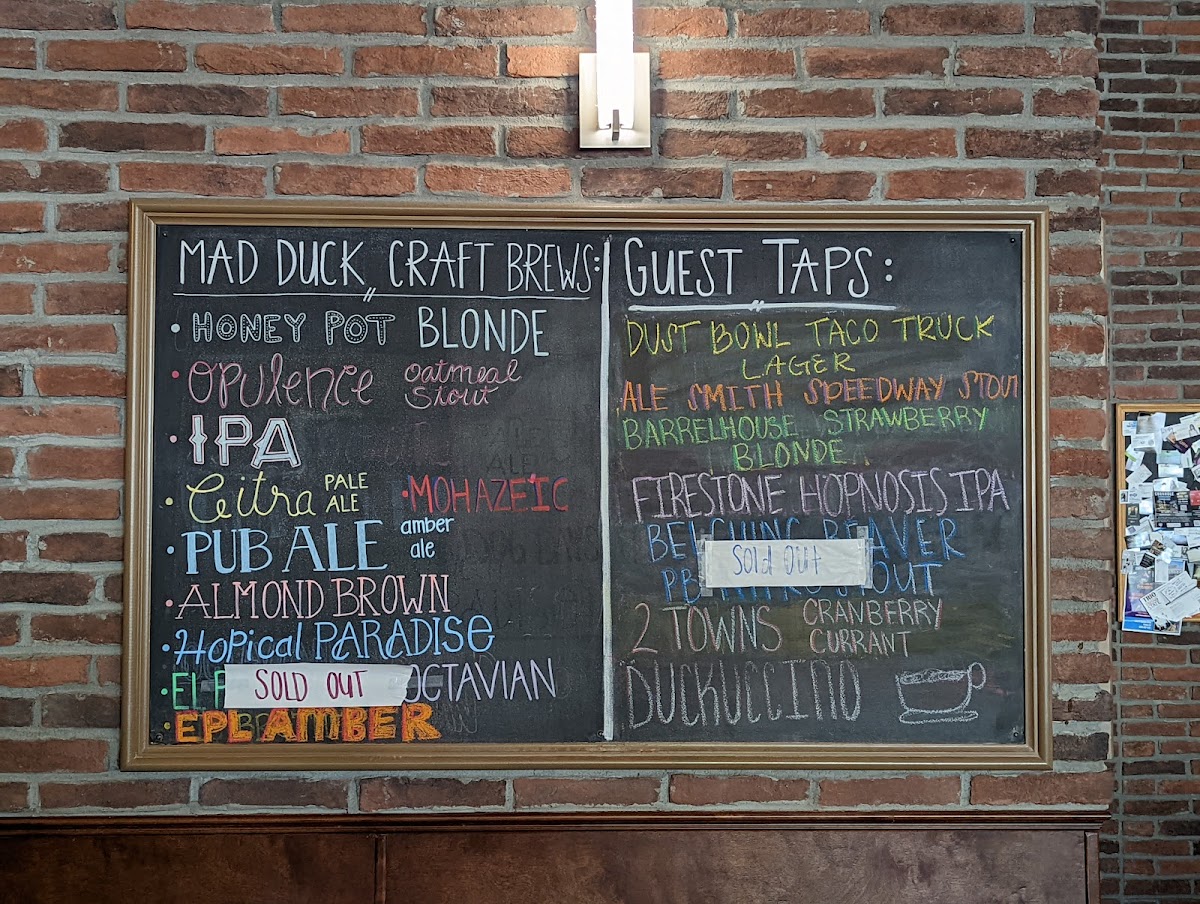 MAD DUCK CRAFT BREWS:
HONEY POT BLONDE
OPULENCE oatmeal stout
IPA
Citra PALE ALE
MOHAZEIC
PUB ALE amber ale
ALMOND BROWN
Hopical PARADISE
SOLD OUT OCTAVIAN
EPL AMBER
GUEST TAPS:
DUST BOWL TACO TRUCK
LAGER
ALE SMITH SPEEDWAY STOUT
BARRELHOUSE STRAWBERRY
BLONDE
FIRESTONE HOPNOSIS IPA
BELCHING BEAVER
Sold Out
PB NITRO STOUT
2 TOWNS CRANBERRY
CURRANT
DUCKUCCINO